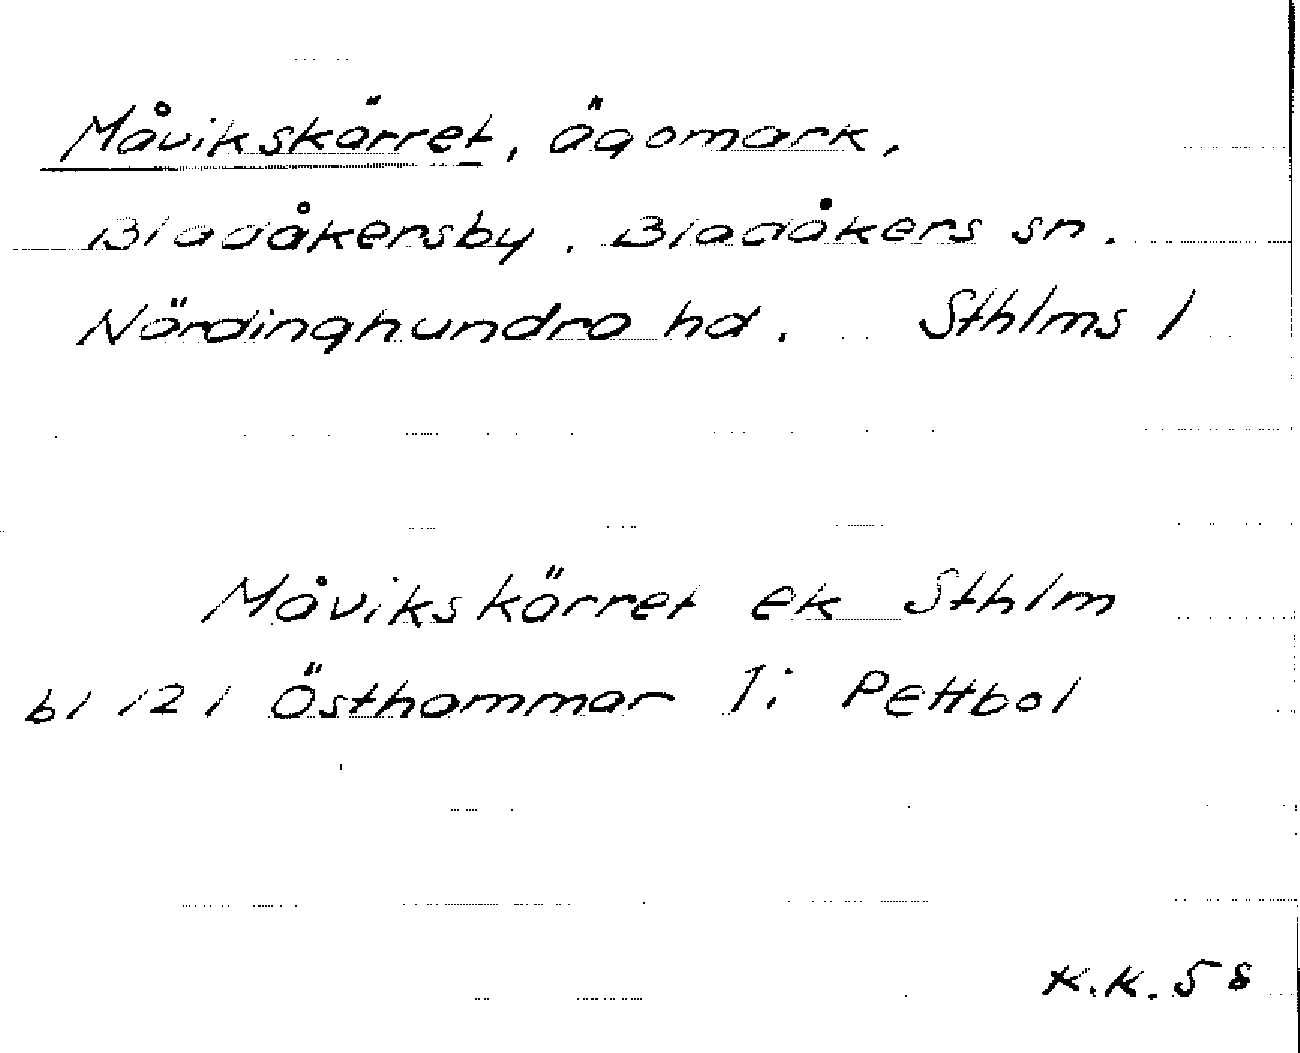 Måvikskärret, ägomark,
Bladåkersby. Bladåkers sn.
Närdinghundra hd. Sthlms l
Måvikskärret ek Sthlm
bl 121 Östhammar I; Pettbol
K.K. 58